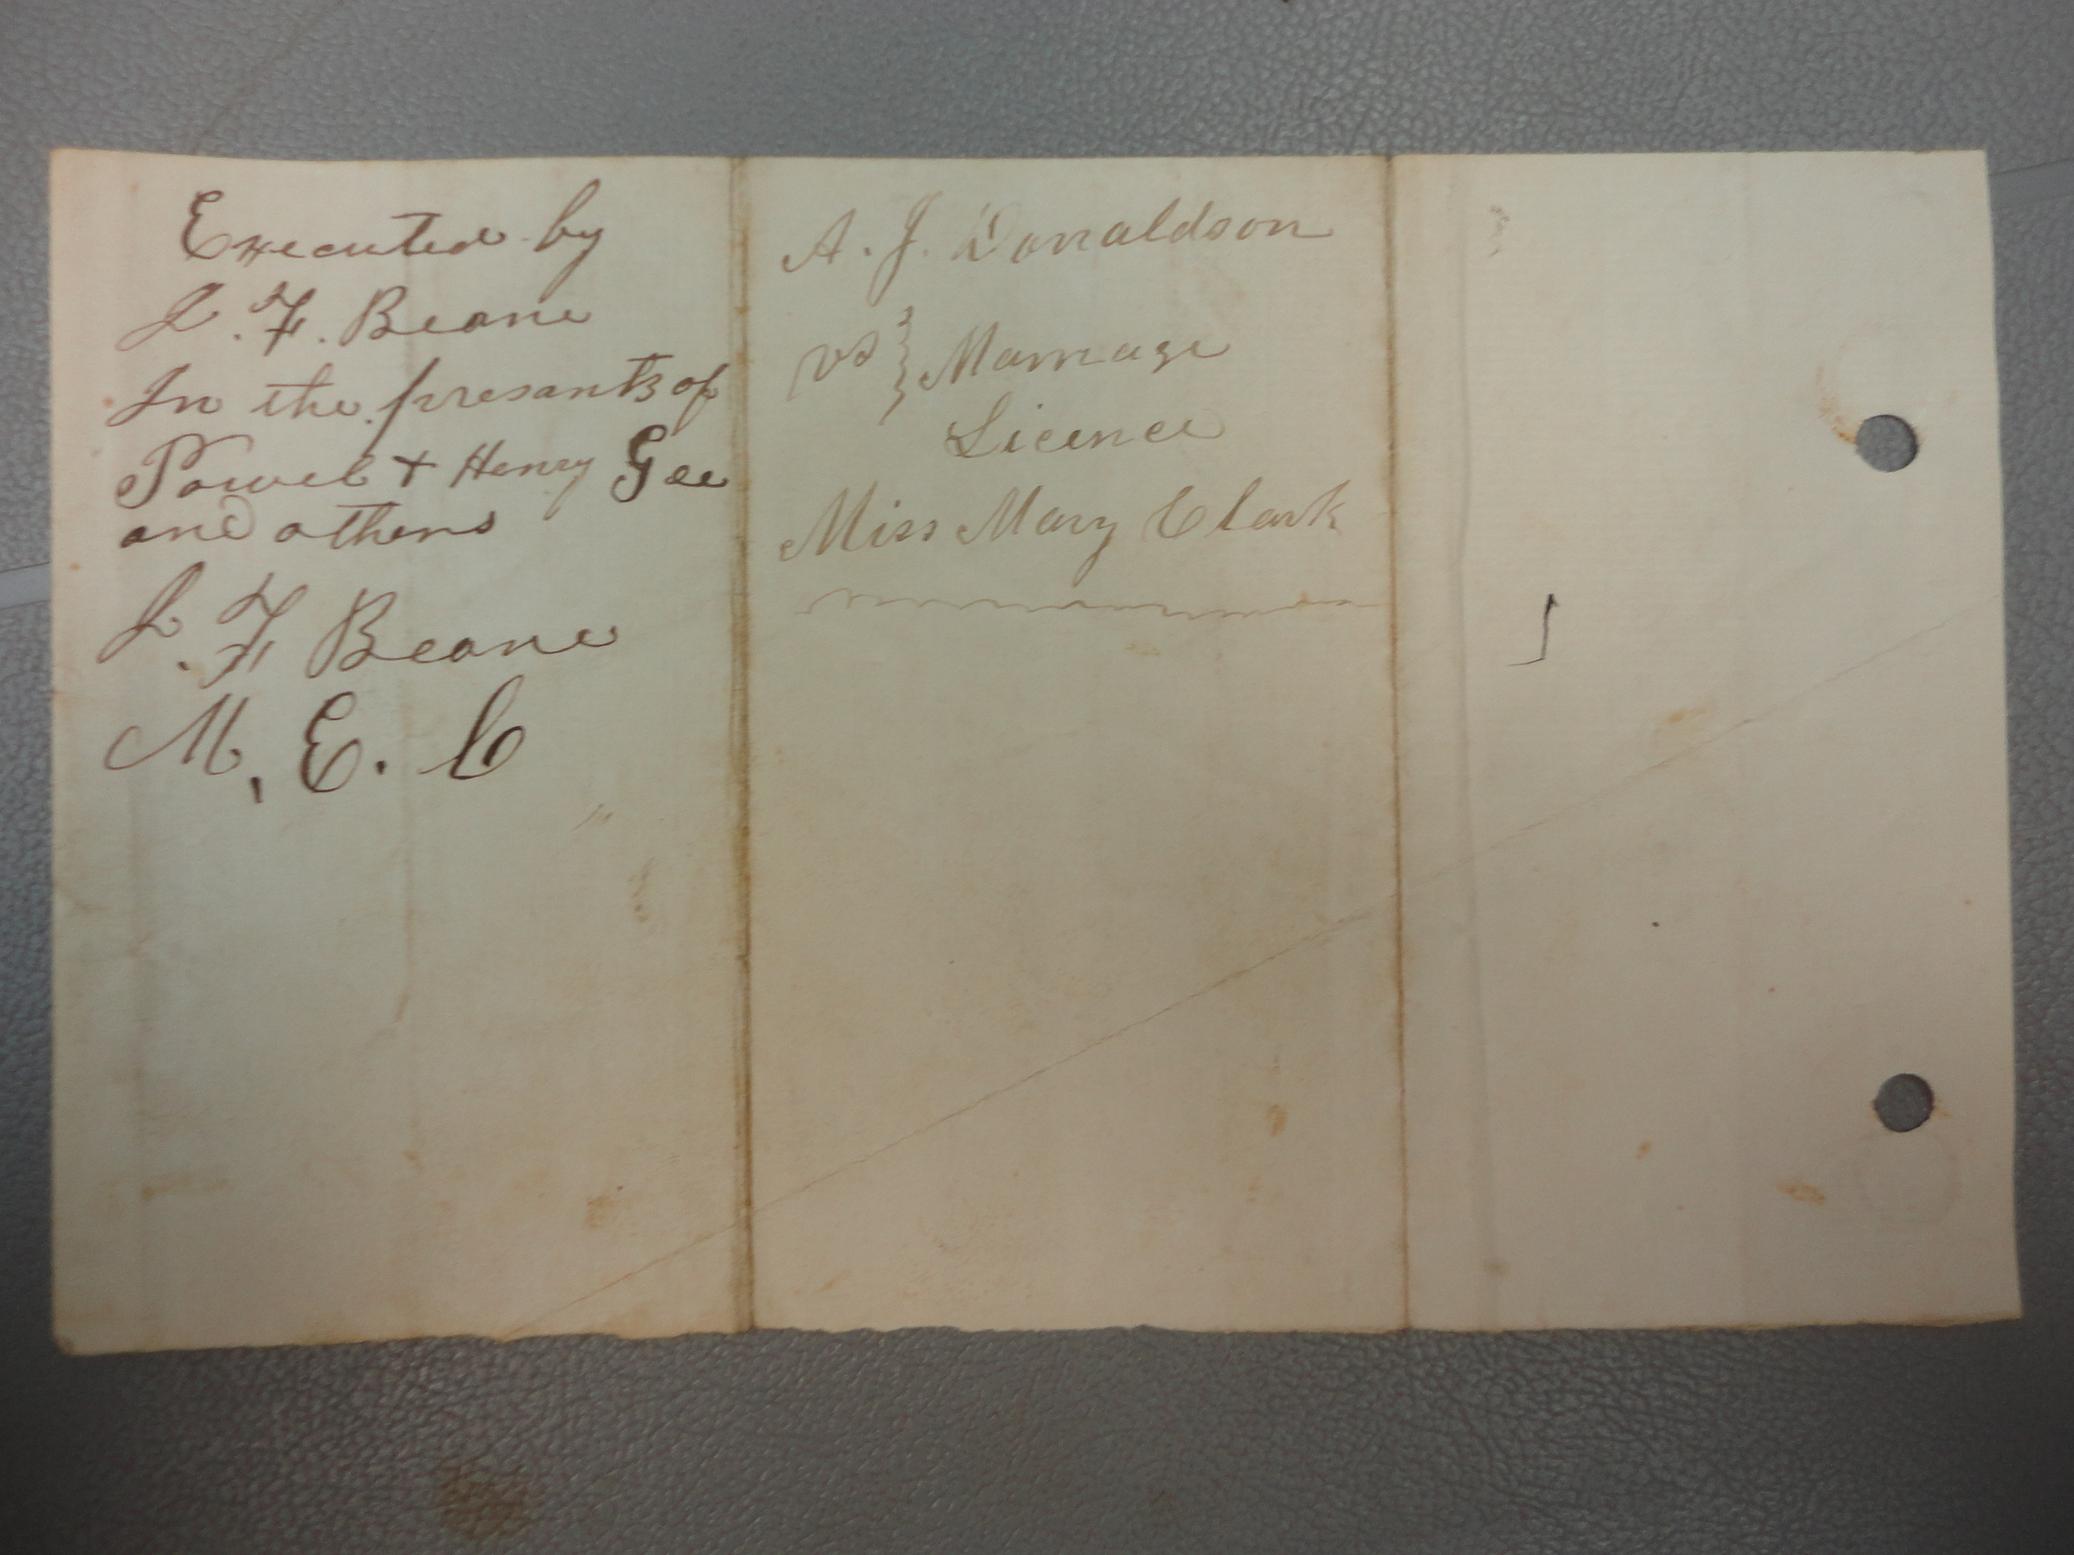 Executed by
J. F. Beane
In the presants of
Powel + Henry Gee
and others
J. F Beane
M. E. C
A. J. Donaldson
vs } Marriage
Licence
Miss Mary Clark